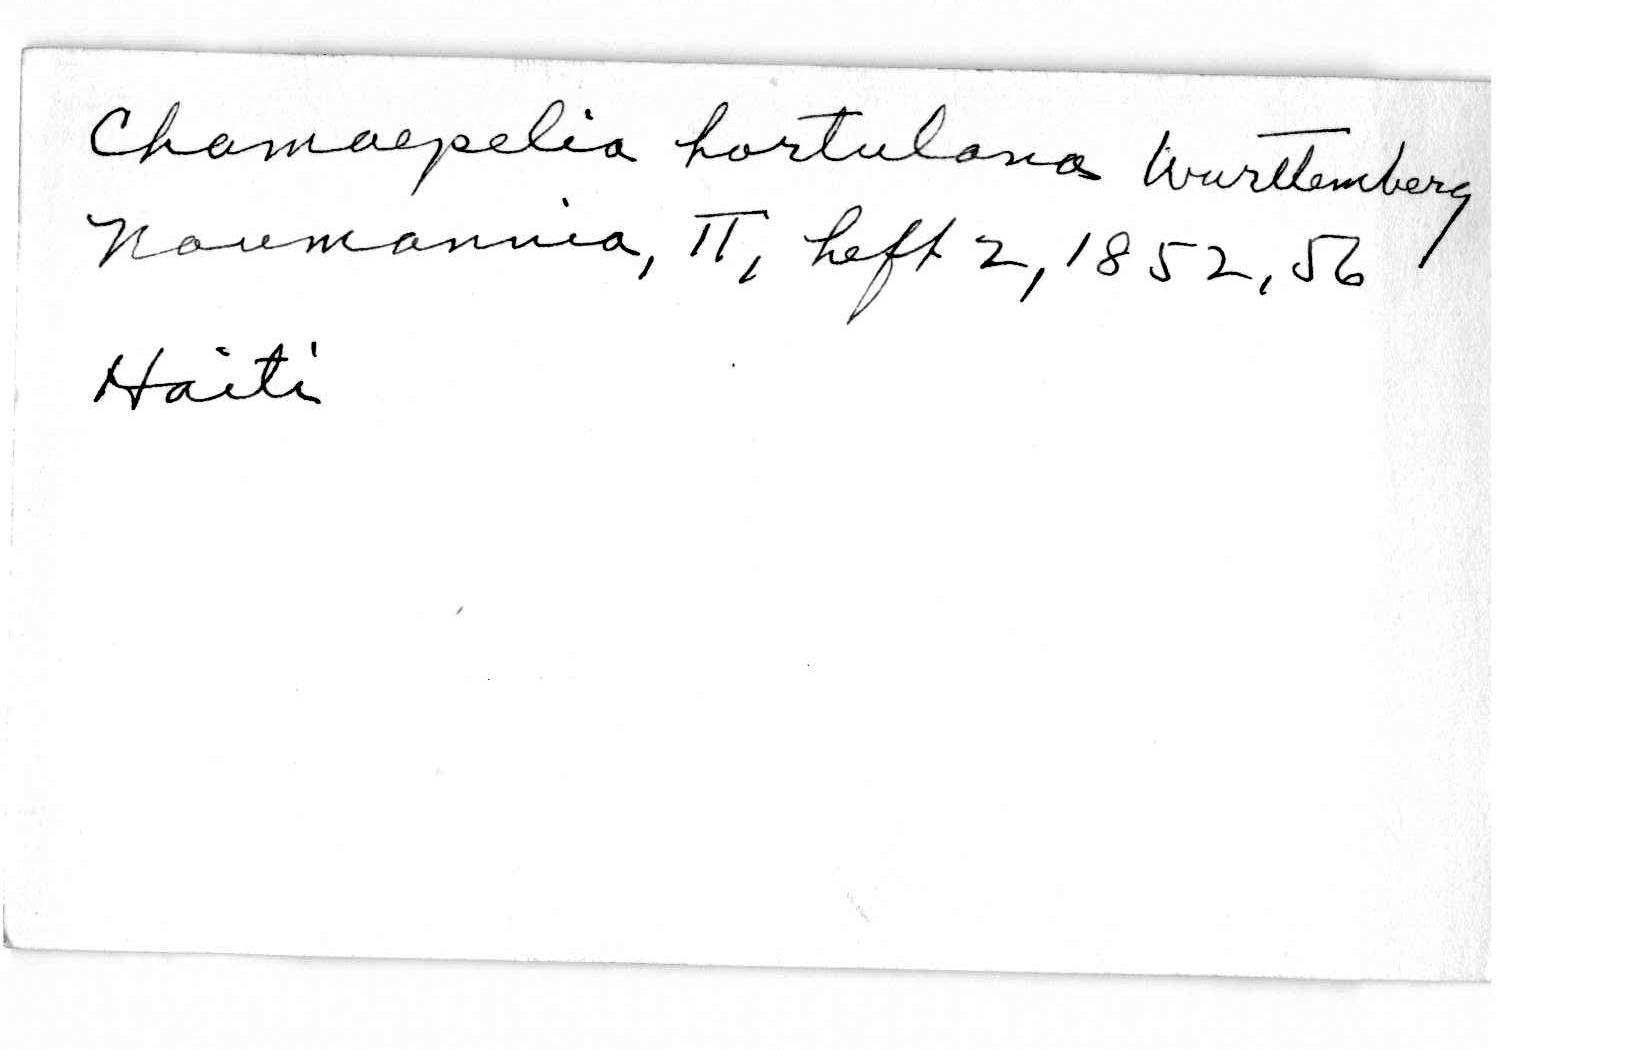 Chamaepelia hortulana Wurttemberg
Naumannia, II, heft 2, 1852, 56
Haiti